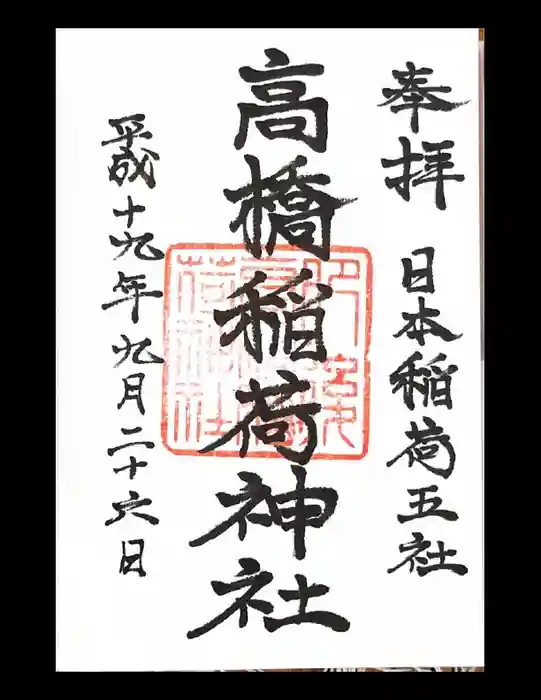 奉拝 日本稲荷五社
高橋稲荷神社
平成十九年九月二十六日